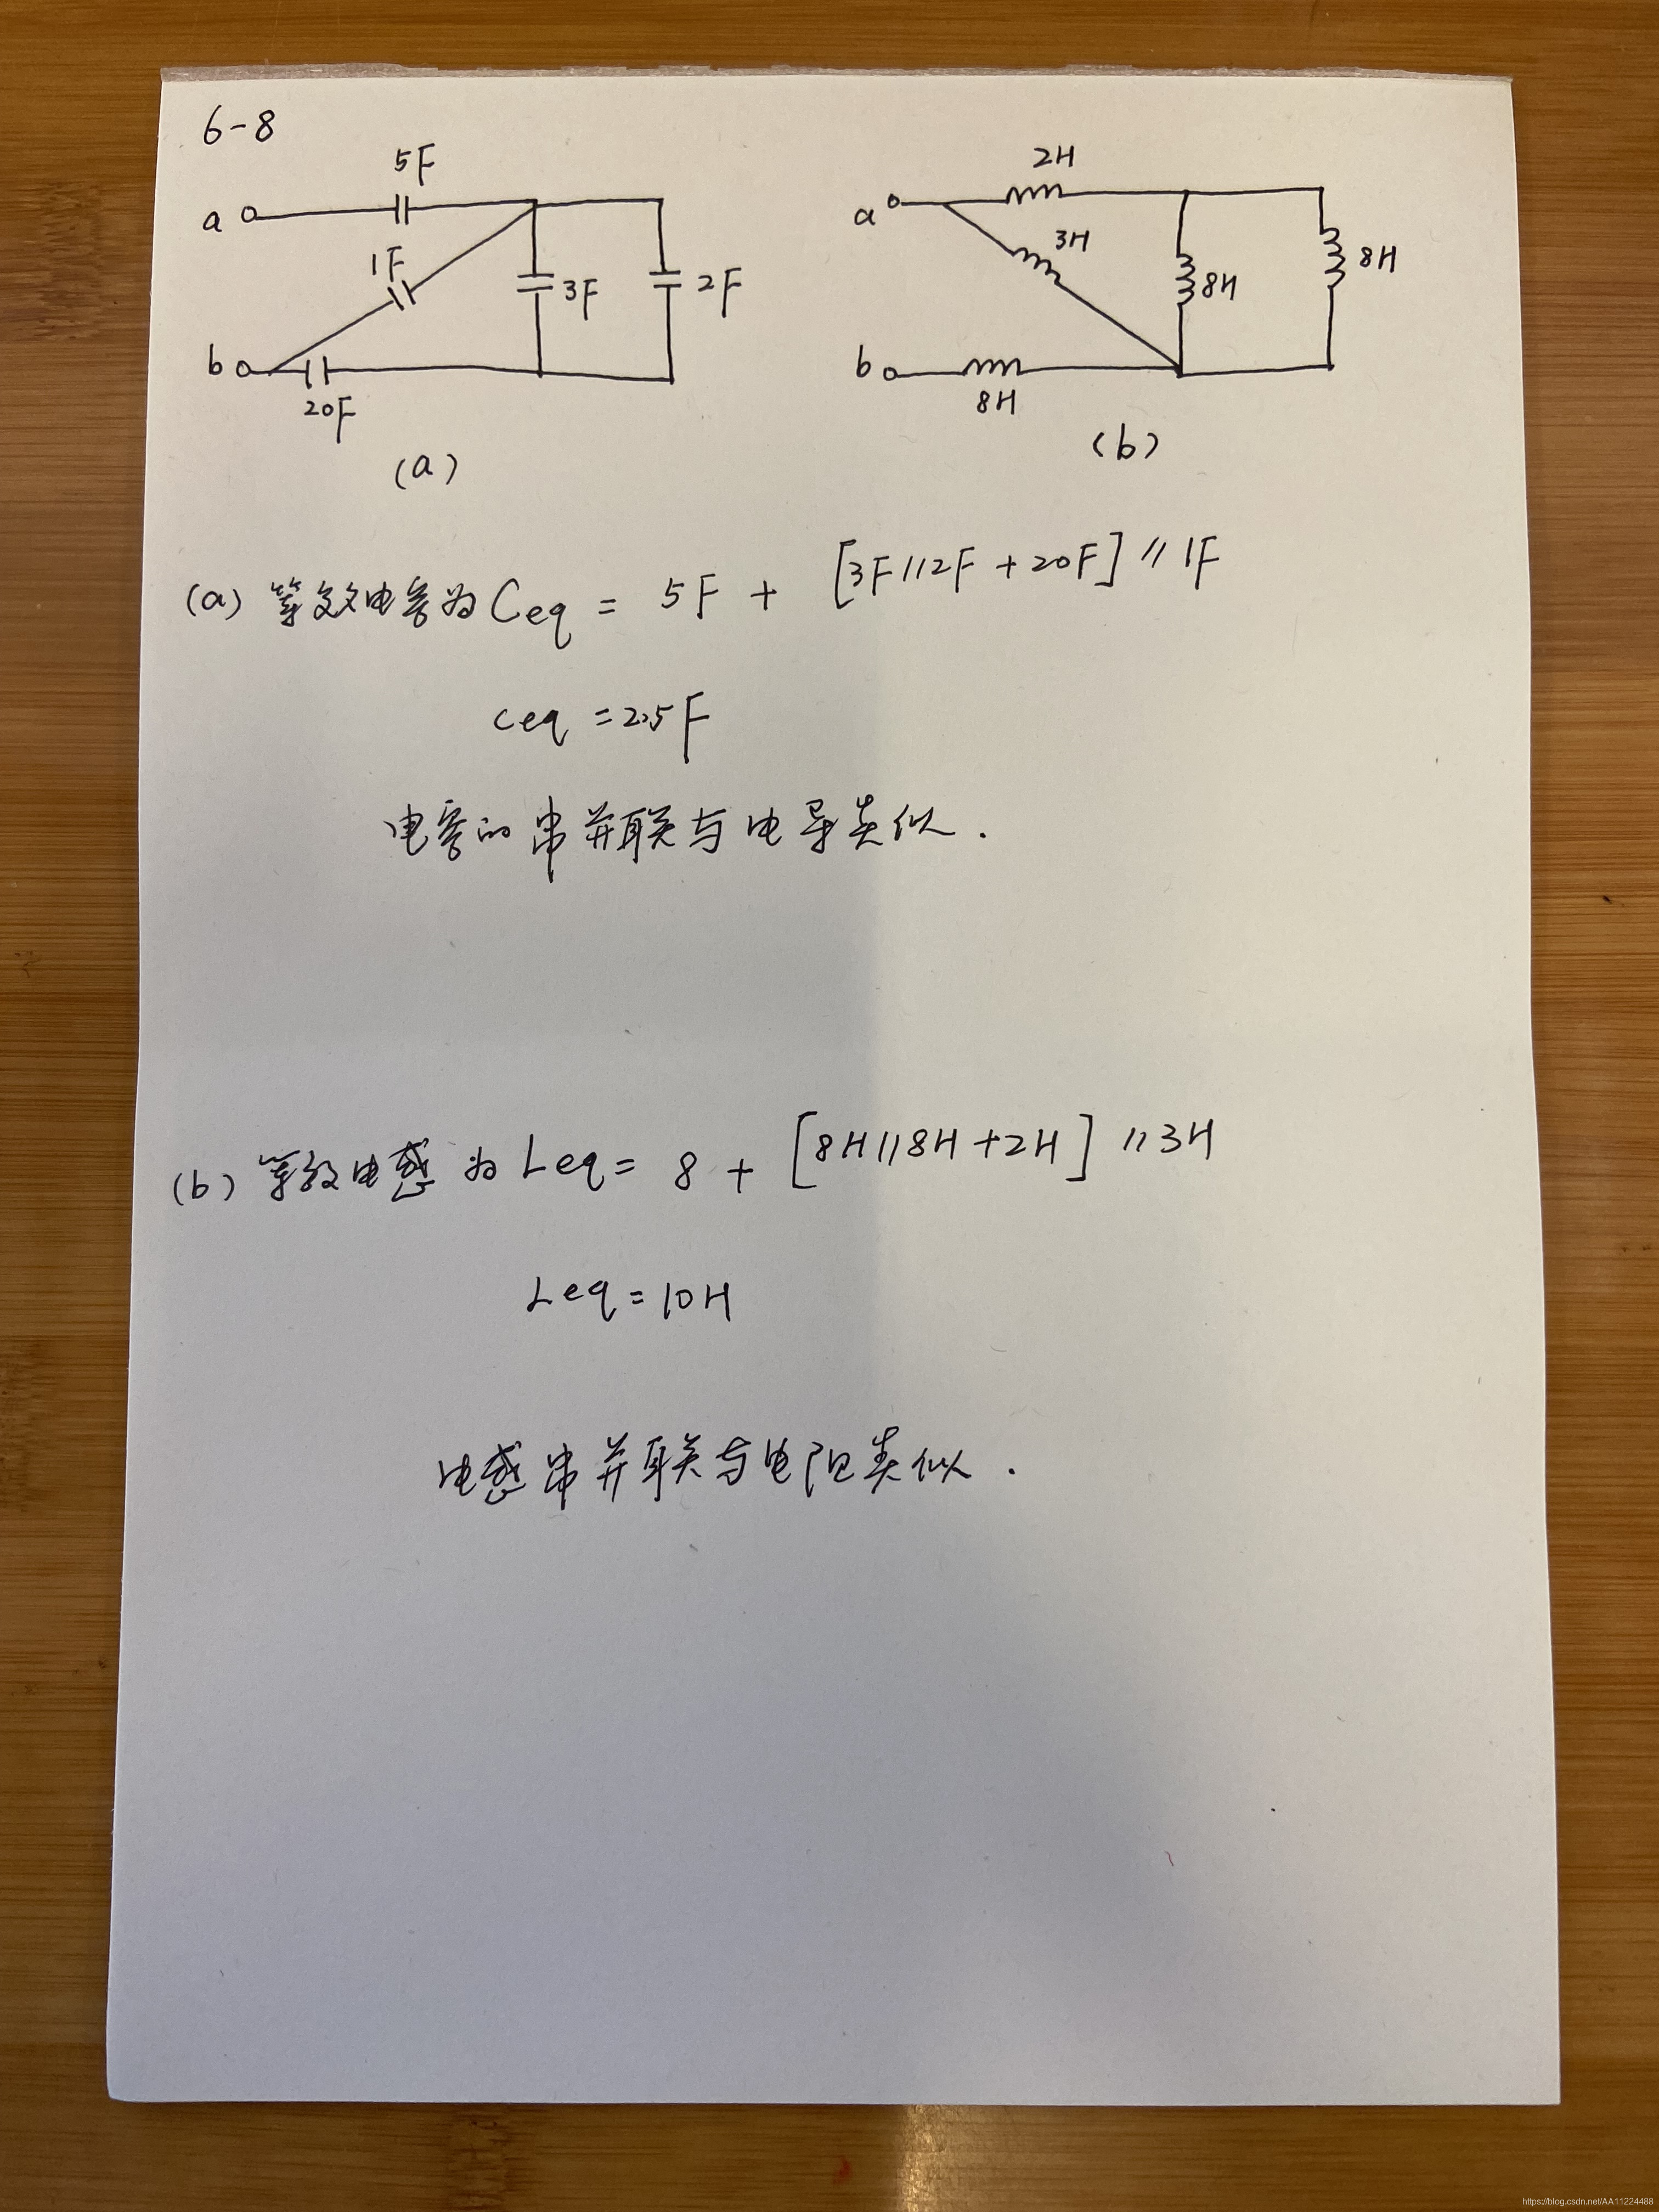 6-8
5F
a
1F
3F
2F
b
20F
(a)
2H
a
3H
8H
8H
b
8H
(b)
(a) 等效电容为 Ceq = 5F + [3F//2F + 20F] // 1F
Ceq = 2.5F
电容的串并联与电导类似.
(b) 等效电感为 Leq = 8 + [8H//8H + 2H] // 3H
Leq = 10H
电感串并联与电阻类似.
https://blog.csdn.net/AA11224488